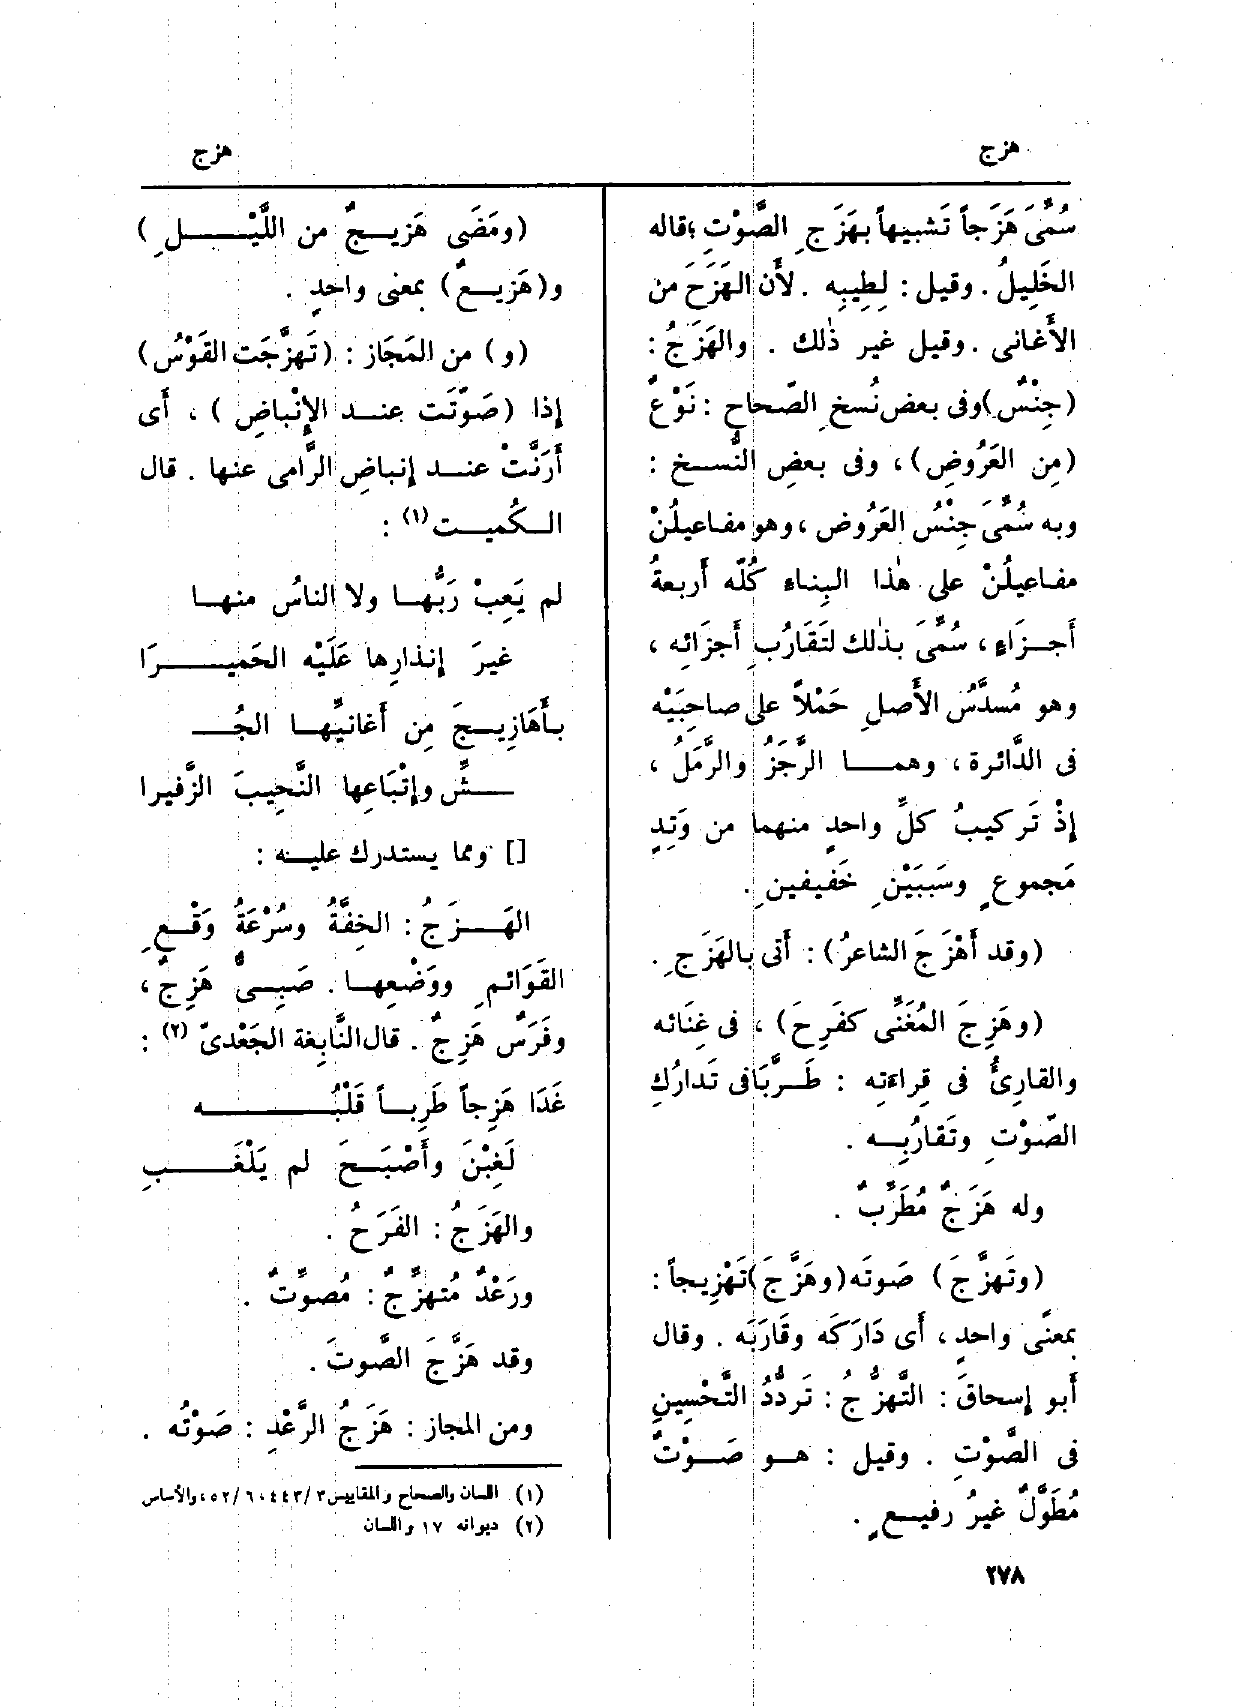 هزج
هزج
سُمِّىَ هَزَجاً تَشبيهاً بهَزَجِ الصَّوْتِ ؛ قاله
الخَلِيلُ . وقيل : لِطِيبِه . لأَن الهَزَجَ من
الأَغانى . وقيل غير ذٰلك . والهَزَجُ :
(جِنْسٌ) وفى بعض نُسخِ الصّحاح : نَوْعٌ
(مِن العَرُوضِ) ، وفى بعضِ النُّسخ :
وبه سُمِّىَ جِنْسُ العَرُوض ، وهو مفاعيلُنْ
مفاعيلُنْ على هٰذا البِناء كُلّه أَربعةُ
أَجزَاءٍ ، سُمِّىَ بذٰلك لتَقَارُبِ أَجزائه ،
وهو مُسدَّسُ الأَصلِ حَمْلاً على صاحِبَيْه
فى الدَّائرة ، وهما الرَّجَزُ والرَّمَلُ ،
إِذْ تَركيبُ كلِّ واحدٍ منهما من وَتِدٍ
مَجموعٍ وسَبَبَيْنِ خَفيفينِ .
(وقد أَهْزَجَ الشاعرُ) : أَتى بالهَزَجِ .
(وهَزِجَ المُغَنِّى كفَرِحَ) ، فى غِنائه
والقارِئُ فى قِراءَتِه : طَرَّبَا فى تَدارُكِ
الصّوْتِ وتَقَارُبِه .
وله هَزَجٌ مُطَرِّبٌ .
(وتَهزَّجَ) صَوتَه (وهَزَّجَ) تَهْزِيجاً :
بمعنًى واحدٍ ، أَى دَارَكَه وقَارَبَه . وقال
أَبو إِسحاقَ : التَّهزُّجُ : تَردُّدُ التَّحْسِينِ
فى الصَّوْتِ . وقيل : هو صَوْتٌ
مُطَوَّلٌ غيرُ رفيعٍ .
(ومَضَى هَزيجٌ من اللَّيْلِ)
و(هَزِيعٌ) بمعنى واحدٍ .
(و) من المَجَاز : (تَهزَّجَت القَوْسُ)
إِذا (صَوَّتَت عند الإِنْباضِ) ، أَى
أَرَنَّتْ عند إِنباضِ الرَّامى عنها . قال
الكُميت (١) :
لم يَعِبْ رَبُّها ولا الناسُ منها
غيرَ إِنذارِها عَلَيْه الحَمِيرَا
بأَهَازِيجَ مِن أَغانيِّها الجُـ
ـشِّ وإِتْبَاعِها النَّحِيبَ الزَّفيرا
[] ومما يستدرك عليه :
الهَزَجُ : الخِفَّةُ وسُرْعَةُ وَقْعِ
القَوَائمِ ووَضْعِها . صَبِىٌّ هَزِجٌ ،
وفَرَسٌ هَزِجٌ . قال النَّابِغة الجَعْدىّ (٢) :
غَدَا هَزِجاً طَرِباً قَلْبُه
لَغِبْنَ وأَصْبَحَ لم يَلْغَبِ
والهَزَجُ : الفَرَحُ .
ورَعْدٌ مُتهزِّجٌ : مُصوِّتٌ .
وقد هَزَّجَ الصَّوتَ .
ومن المجاز : هَزَجُ الرَّعْدِ : صَوْتُه .
(١) اللسان والصحاح والمقاييس ٣/٤٤٣ ، ٦/٥٢ ، والأساس
(٢) ديوانه ١٧ واللسان
٢٧٨